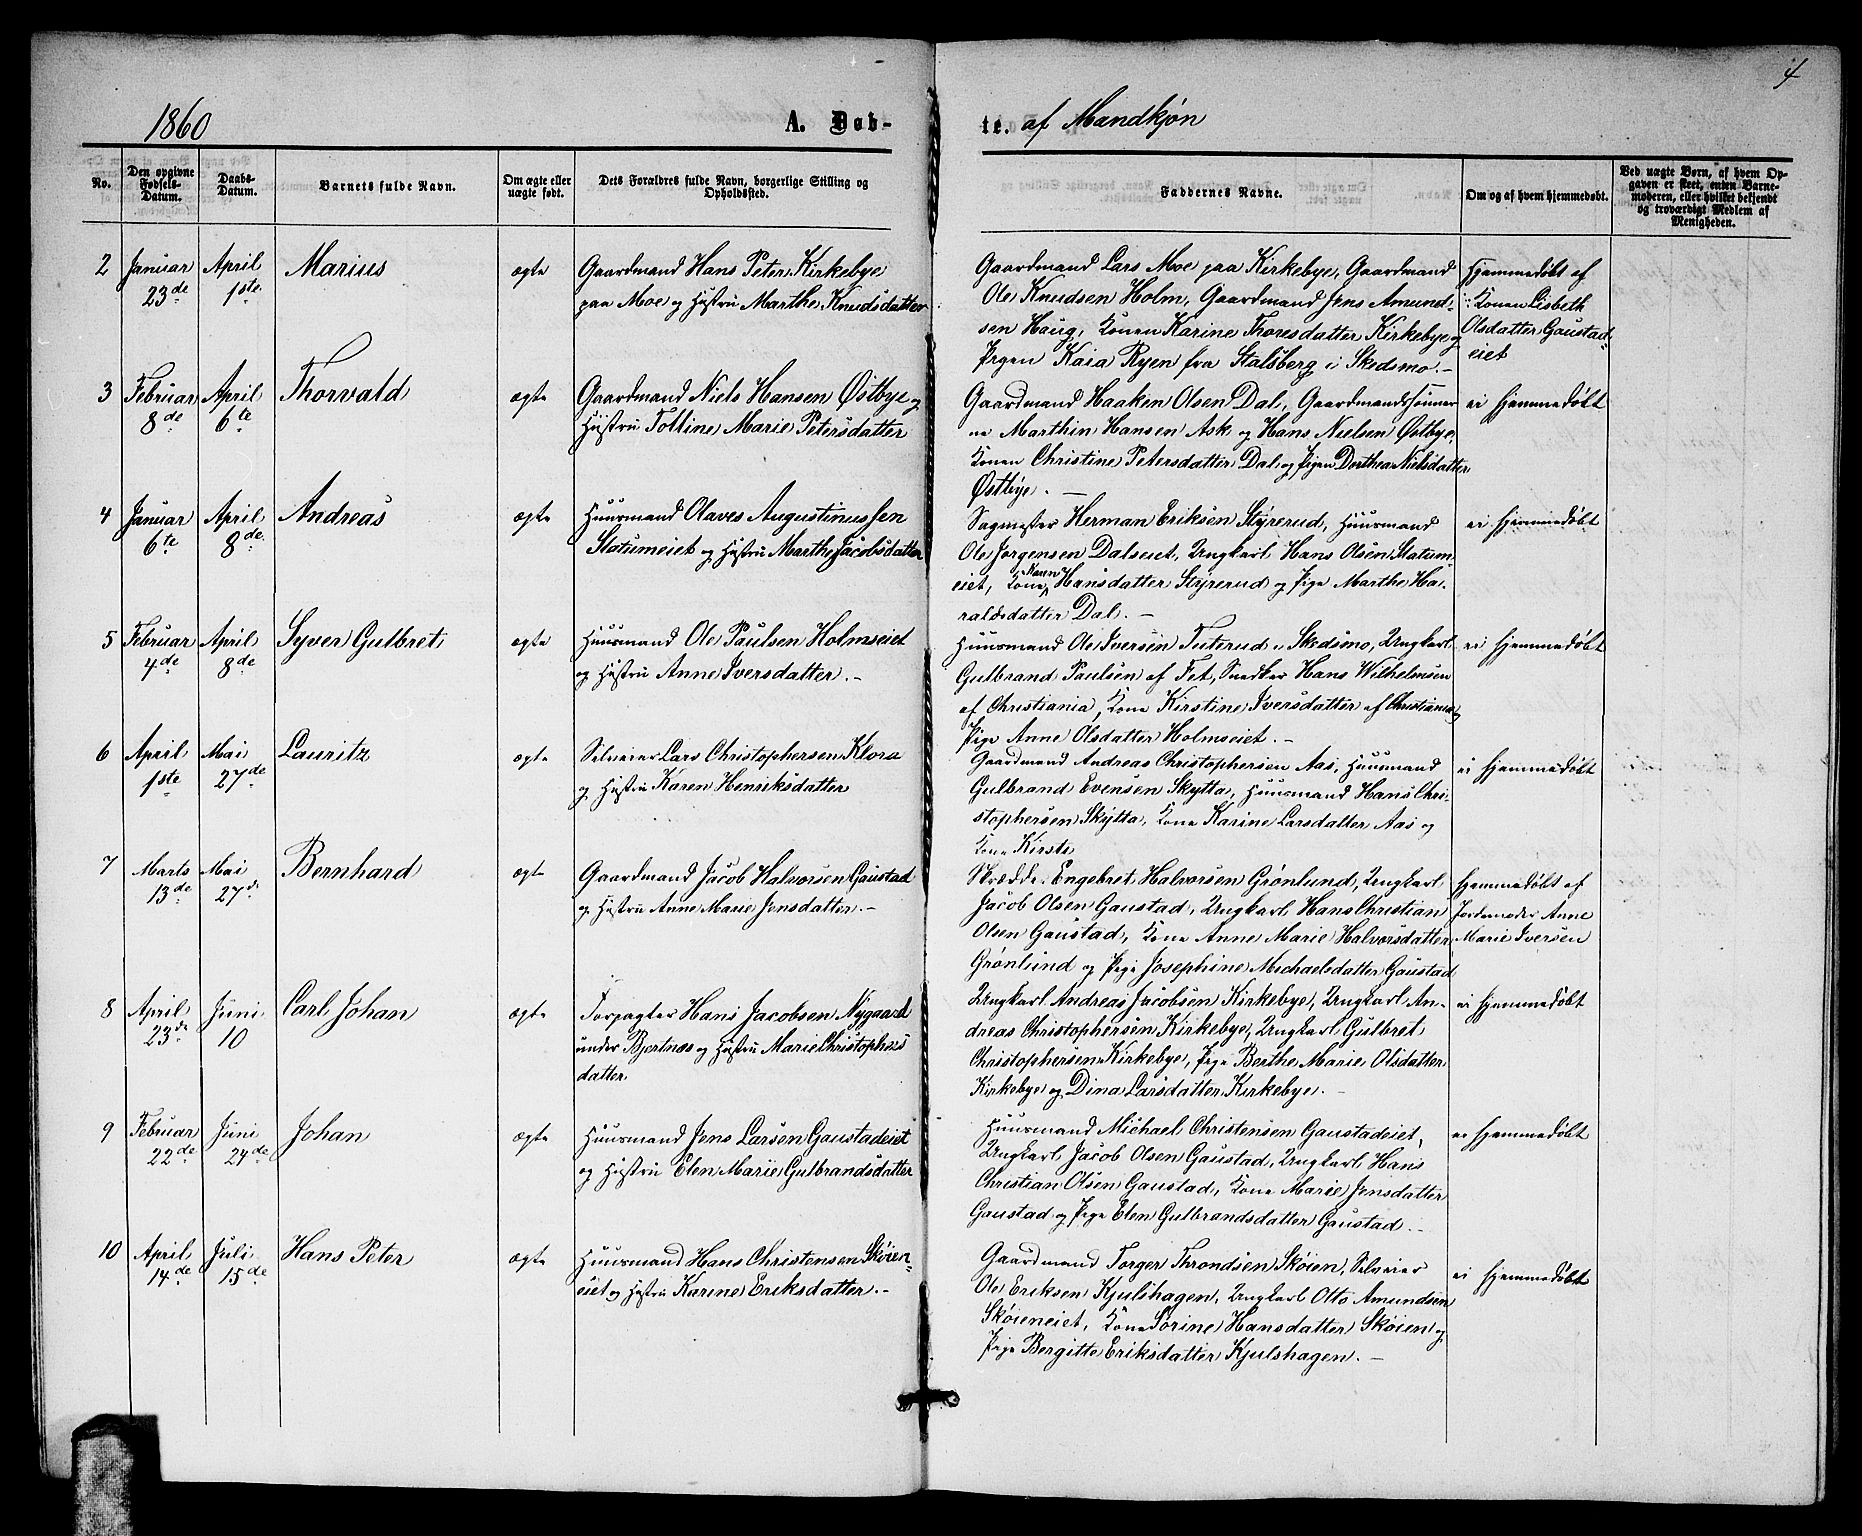 4
1860
A. Døb-
te. af Mandkjøn
No.
Den opgivne
Fødsels-
Datum.
Daabs-
Datum.
Barnets fulde Navn.
Om ægte eller
uægte født.
Dets Forældres fulde Navn, borgerlige Stilling og
Opholdssted.
Faddernes Navne.
Om og af hvem hjemmedøbt.
Ved uægte Børn, af hvem Op-
gaven er skeet, enten Barne-
moderen, eller hvilket bekjendt
og troværdigt Medlem af
Menigheden.
2
Januar
23de
April
1ste
Marius
ægte
Gaardmand Hans Peter Kirkebye
paa Moe og Hustru Marthe Knudsdatter
Gaardmand Lars Moe paa Kirkebye, Gaardmand
Ole Knudsen Holm, Gaardmand Jens Amund-
sen Haug, Konen Karine Thoresdatter Kirkebye og
Pigen Kaia Ryen fra Stalsberg i Skedsmo.-
Hjemmedøbt af
Konen Lisbeth
Olsdatter Gaustad-
eiet
3
Februar
8de
April
6te
Thorvald
ægte
Gaardmand Niels Hansen Østbye og
Hustru Tolline Marie Petersdatter
Gaardmand Haaken Olsen Dal, Gaardmandssønner-
ne Marthin Hansen Ask og Hans Nielsen Østbye,
Konen Christine Petersdatter Dal og Pigen Dorthea Nielsdatter
Østbye.-
ei hjemmedøbt
4
Januar
6te
April
8de
Andreas
ægte
Huusmand Olaves Augustinussen
Statumeiet og Hustru Marthe Jacobsdatter
Sagmester Herman Eriksen Styrerud, Huusmand
Ole Jørgensen Dalseiet, Ungkarl Hans Olsen Statum-
eiet, Kone Karen Hansdatter Styrerud og Pige Marthe Ha-
raldsdatter Dal.-
ei hjemmedøbt
5
Februar
4de
April
8de
Syver Gulbret
ægte
Huusmand Ole Paulsen Holmseiet
og Hustru Anne Iversdatter.-
Huusmand Ole Iversen Tuterud i Skedsmo, Ungkarl
Gulbrand Paulsen af Fet, Snedker Hans Wilhelmsen
af Christiania, Kone Kirstine Iversdatter af Christiania og
Pige Anne Olsdatter Holmseiet.-
ei hjemmedøbt
6
April
1ste
Mai
27de
Lauritz
ægte
Selveier Lars Christophersen Klova
og Hustru Karen Henriksdatter
Gaardmand Andreas Christophersen Aas, Huusmand
Gulbrand Evensen Skytta, Huusmand Hans Chri-
stophersen Skytta, Kone Karine Larsdatter Aas og
Kone Kirsti
ei hjemmedøbt
7
Marts
13de
Mai
27de
Bernhard
ægte
Gaardmand Jacob Halvorsen Gaustad
og Hustru Anne Marie Jensdatter.-
Skrædder Engebret Halvorsen Grønlund, Ungkarl
Jacob Olsen Gaustad, Ungkarl Hans Christian
Olsen Gaustad, Kone Anne Marie Halvorsdatter
Grønlund og Pige Josephine Michaelsdatter Gaustad
hjemmedøbt af
Jordemoder Anne
Marie Iversen
8
April
23de
Juni
10
Carl Johan
ægte
Forpagter Hans Jacobsen Nygaard
under Bjertnæs og Hustru Marie Christophers
datter
Ungkarl Andreas Jacobsen Kirkebye, Ungkarl An-
dreas Christophersen Kirkebye, Ungkarl Gulbret
Christophersen Kirkebye, Pige Berthe Marie Olsdatter
Kirkebye og Dina Larsdatter Kirkebye.-
ei hjemmedøbt
9
Februar
22de
Juni
24de
Johan
ægte
Huusmand Jens Larsen Gaustadeiet
og Hustru Elen Marie Gulbrandsdatter
Huusmand Michael Christensen Gaustadeiet,
Ungkarl Jacob Olsen Gaustad, Ungkarl Hans
Christian Olsen Gaustad, Kone Marie Jensdatter
Gaustad og Pige Elen Gulbrandsdatter Gaustad.-
ei hjemmedøbt
10
April
14de
Juli
15de
Hans Peter
ægte
Huusmand Hans Christensen Skøien-
eiet og Hustru Karine Eriksdatter.-
Gaardmand Torger Throndsen Skøien, Selveier
Ole Eriksen Kjulshagen, Ungkarl Otto Amundsen
Skøieneiet, Kone Sørine Hansdatter Skøien og
Pige Bergitte Eriksdatter Kjulshagen.-
ei hjemmedøbt